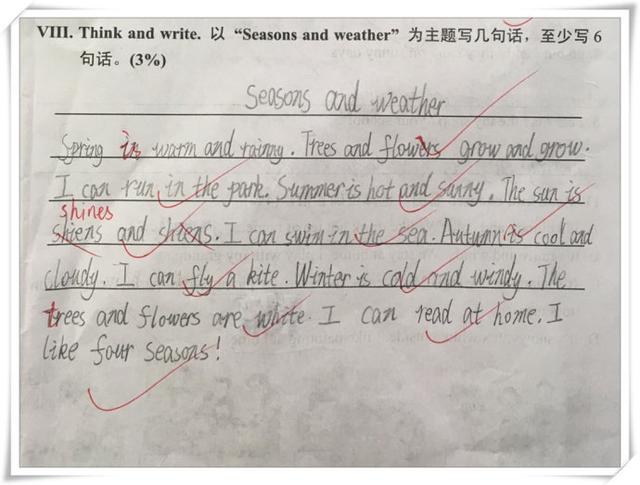 VIII. Think and write. 以 “Seasons and weather” 为主题写几句话，至少写 6
句话。(3%)
Seasons and weather
Spring is warm and rainny. Trees and flowers grow and grow.
I can run in the park. Summer is hot and sunny. The sun is
shines
shiens and shiens. I can swim in the sea. Autumn is cool and
cloudy. I can fly a kite. Winter is cold and windy. The
trees and flowers are white. I can read at home. I
like four seasons!